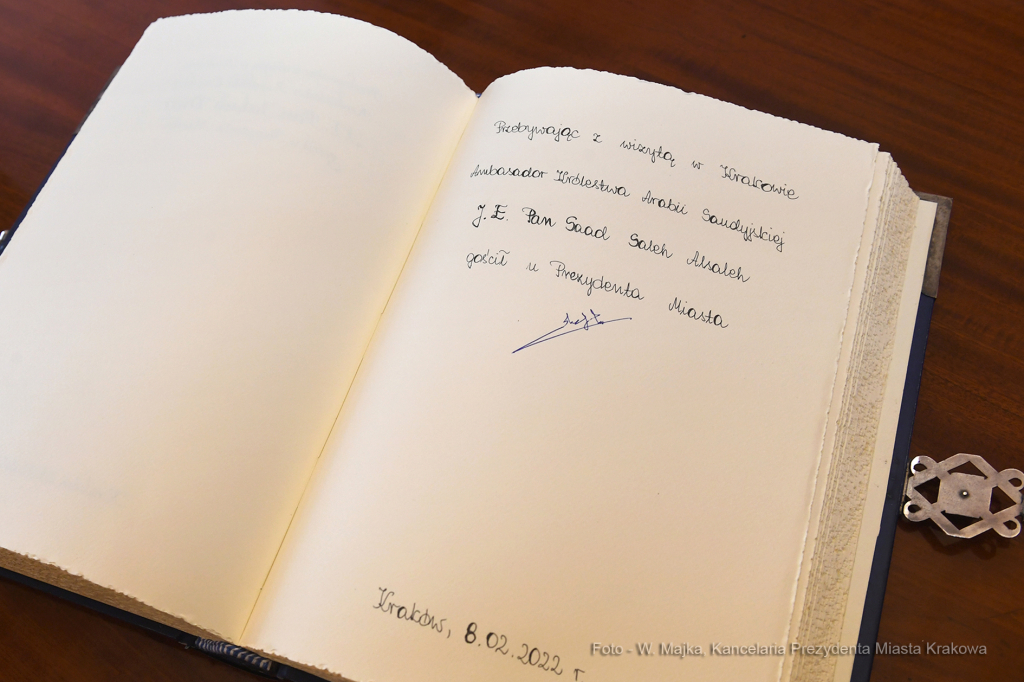 Przebywając z wizytą w Krakowie
Ambasador Królestwa Arabii Saudyjskiej
J. E. Pan Saad Saleh Alsaleh
gościł u Prezydenta Miasta
Kraków, 8.02.2022 r
Foto - W. Majka, Kancelaria Prezydenta Miasta Krakowa